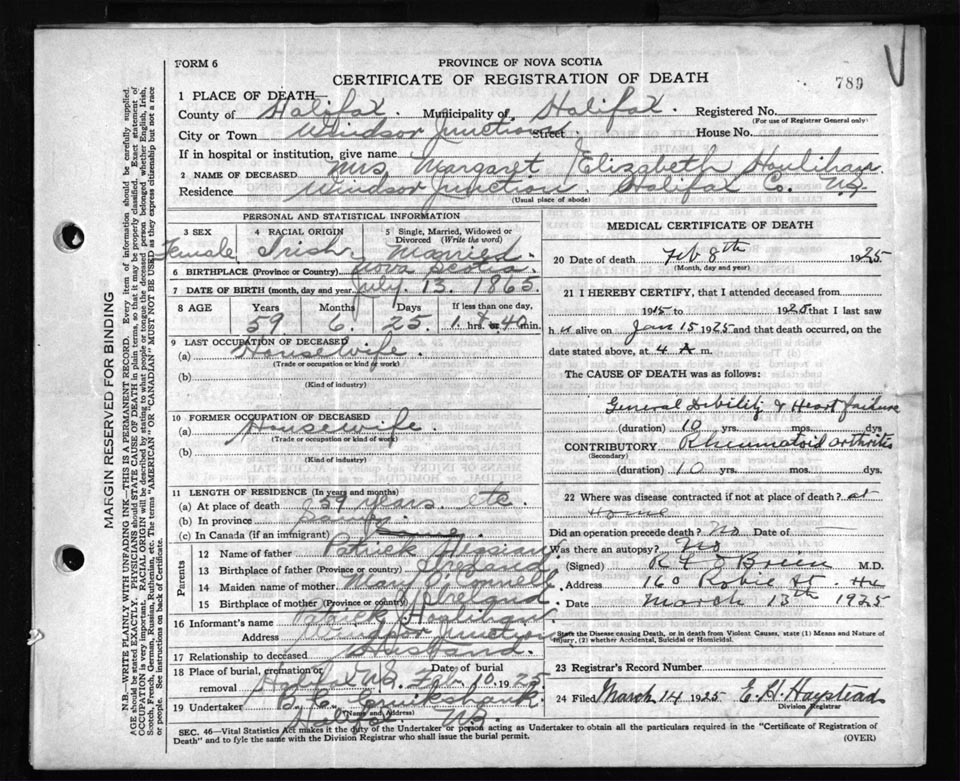 FORM 6
PROVINCE OF NOVA SCOTIA
CERTIFICATE OF REGISTRATION OF DEATH
789
1 PLACE OF DEATH—
County of Halifax. Municipality of Halifax. Registered No.
(For use of Registrar General only)
City or Town Windsor Junction Street House No.
If in hospital or institution, give name
2 NAME OF DECEASED Mrs Margaret Elizabeth Houlihan
Residence Windsor Junction. Halifax Co. N.S.
(Usual place of abode)
PERSONAL AND STATISTICAL INFORMATION
3 SEX Female 4 RACIAL ORIGIN Irish 5 Single, Married, Widowed or Divorced (Write the word) Married
6 BIRTHPLACE (Province or Country) Nova Scotia.
7 DATE OF BIRTH (month, day and year) July. 13. 1865.
8 AGE Years Months Days If less than one day,
59 6. 25. hrs. or min.
9 LAST OCCUPATION OF DECEASED
(a) Housewife.
(Trade or occupation or kind of work)
(b)
(Kind of industry)
10 FORMER OCCUPATION OF DECEASED
(a) Housewife.
(Trade or occupation or kind of work)
(b)
(Kind of industry)
11 LENGTH OF RESIDENCE (In years and months)
(a) At place of death 39 years. etc
(b) In province
(c) In Canada (if an immigrant)
Parents
12 Name of father Patrick
13 Birthplace of father (Province or country) Ireland
14 Maiden name of mother Mary O'Connell
15 Birthplace of mother (Province or country) Ireland
16 Informant's name Patrick Houlihan
Address Windsor Junction
17 Relationship to deceased Husband.
18 Place of burial, cremation or removal Halifax N.S. Date of burial Feb. 10. 1925
19 Undertaker B. C. Cruikshank.
(Name and Address)
Halifax N.S.
MEDICAL CERTIFICATE OF DEATH
20 Date of death Feb 8th 1925
(Month, day and year)
21 I HEREBY CERTIFY, that I attended deceased from
1915 to 1925 that I last saw
h er alive on Jan 15 1925 and that death occurred, on the
date stated above, at 4 A m.
The CAUSE OF DEATH was as follows:
General Debility & Heart failure
(duration) 10 yrs. mos. dys
CONTRIBUTORY Rheumatoid arthritis
(Secondary)
(duration) 10 yrs. mos. dys.
22 Where was disease contracted if not at place of death? at
Home
Did an operation precede death? No Date of
Was there an autopsy? No
(Signed) R F O'Brien M.D.
Address 160 Robie St. Hx
Date March 13th 1925
State the Disease causing Death, or in death from Violent Causes, state (1) Means and Nature of Injury, (2) whether Accidental, Suicidal or Homicidal.
23 Registrar's Record Number
24 Filed March 14 1925 E. H. Haystead
Division Registrar
SEC. 46—Vital Statistics Act makes it the duty of the Undertaker or person acting as Undertaker to obtain all the particulars required in the "Certificate of Registration of
Death" and to fyle the same with the Division Registrar who shall issue the burial permit. (OVER)
MARGIN RESERVED FOR BINDING
N.B.—WRITE PLAINLY WITH UNFADING INK—THIS IS A PERMANENT RECORD. Every item of information should be carefully supplied.
AGE should be stated EXACTLY. PHYSICIANS should STATE CAUSE OF DEATH in plain terms, so that it may be properly classified. Exact statement of
OCCUPATION is very important. RACIAL ORIGIN will be described by stating to what people or tongue the deceased person belonged whether English, Irish,
Scotch, French, German, Russian, Ruthenian, etc. The terms "AMERICAN" or "CANADIAN" MUST NOT BE USED as they express citizenship but not a race
or people. See instructions on back of Certificate.